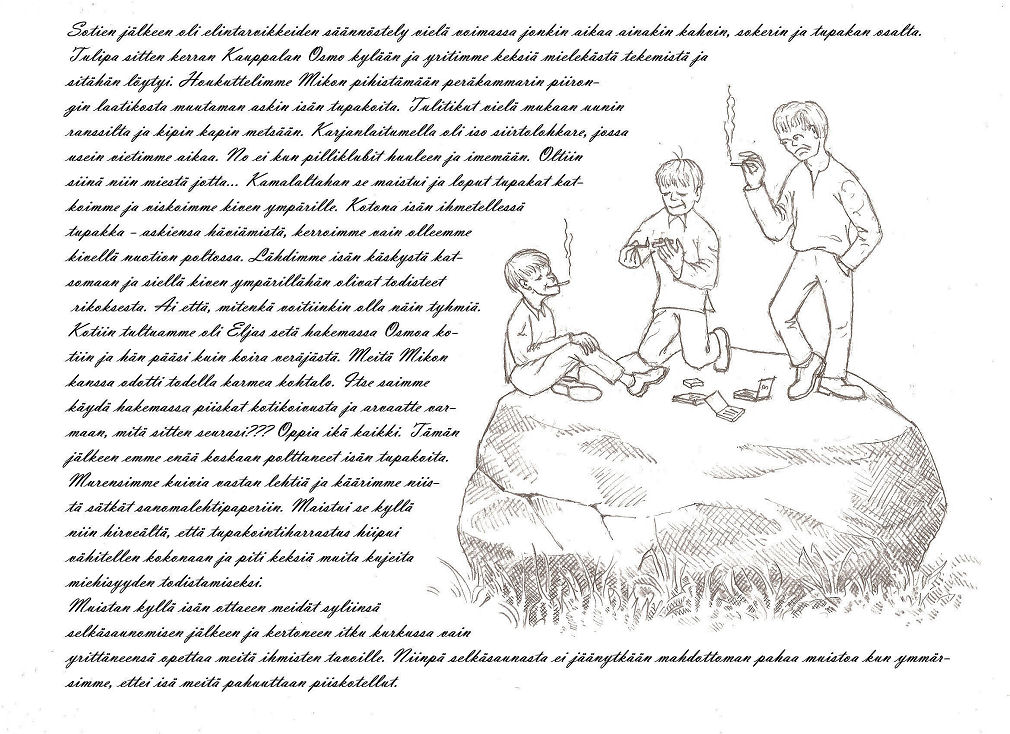 Sotien jälkeen oli elintarvikkeiden säännöstely vielä voimassa jonkin aikaa ainakin kahvin, sokerin ja tupakan osalta.
Tulipa sitten kerran Kauppalan Osmo kylään ja yritimme keksiä mielekästä tekemistä ja
sitähän löytyi. Houkuttelimme Mikon pihistämään peräkammarin piiron-
gin laatikosta muutaman askin isän tupakoita. Tulitikut vielä mukaan uunin
ranssilta ja kipin kapin metsään. Karjanlaitumella oli iso siirtolohkare, jossa
usein vietimme aikaa. No ei kun pilliklubit huuleen ja imemään. Oltiin
siinä niin miestä jotta... Kamalaltahan se maistui ja loput tupakat kat-
koimme ja viskoimme kiven ympärille. Kotona isän ihmetellessä
tupakka - askiensa häviämistä, kerroimme vain olleemme
kivellä nuotion poltossa. Lähdimme isän käskystä kat-
somaan ja siellä kiven ympärillähän olivat todisteet
rikoksesta. Ai että, mitenkä voitiinkin olla näin tyhmiä.
Kotiin tultuamme oli Eljas setä hakemassa Osmoa ko-
tiin ja hän pääsi kuin koira veräjästä. Meitä Mikon
kanssa odotti todella karmea kohtalo. Itse saimme
käydä hakemassa piiskat kotikoivusta ja arvaatte var-
maan, mitä sitten seurasi??? Oppia ikä kaikki. Tämän
jälkeen emme enää koskaan polttaneet isän tupakoita.
Murensimme kuivia vastan lehtiä ja käärimme niis-
tä sätkät sanomalehtipaperiin. Maistui se kyllä
niin hirveältä, että tupakointiharrastus hiipui
vähitellen kokonaan ja piti keksiä muita kujeita
miehisyyden todistamiseksi.
Muistan kyllä isän ottaeen meidät syliinsä
selkäsaunomisen jälkeen ja kertoneen itku kurkussa vain
yrittäneensä opettaa meitä ihmisten tavoille. Niinpä selkäsaunasta ei jäänytkään mahdottoman pahaa muistoa kun ymmär-
simme, ettei isä meitä pahuuttaan piiskotellut.